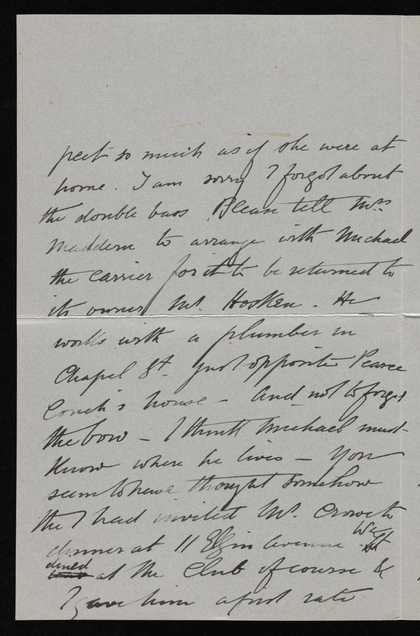 pect so much as if she were at
home. I am sorry I forgot about
the double bass. Please tell Mrs
Maddern to arrange with Michael
the carrier for it to be returned to
its owner Mr. Hosken. He
works with a plumber in
Chapel St just opposite Pearce
Couch's house - And not to forget
the bow - I think Michael must
know where he lives - You
seem to have thought somehow
the I had invited Mr. Crowe to
dinner at 11 Elgin Avenue We
dined at the Club of course &
I gave him a first rate